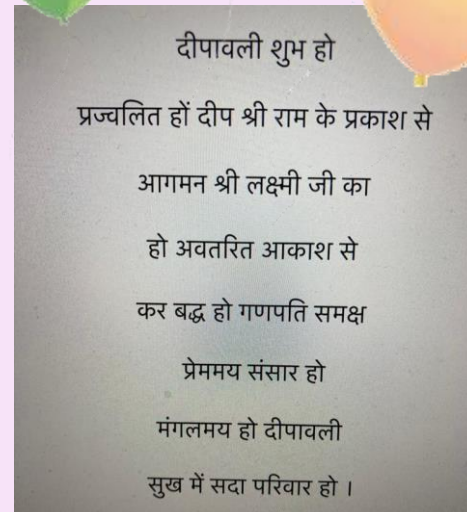 दीपावली शुभ हो
प्रज्वलित हों दीप श्री राम के प्रकाश से
आगमन श्री लक्ष्मी जी का
हो अवतरित आकाश से
कर बद्ध हो गणपति समक्ष
प्रेममय संसार हो
मंगलमय हो दीपावली
सुख में सदा परिवार हो ।